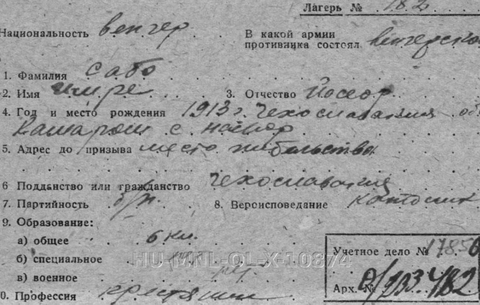 Лагерь № 182
Национальность венгер В какой армии
противника состоял венгерской
1. Фамилия сабо
2. Имя имре 3. Отчество Йосеф
4. Год и место рождения 1913 г. Чехословакия
с.
5. Адрес до призыва место жительства
6 Подданство или гражданство Чехословакия
7. Партийность б/п 8. Вероисповедание католик
9. Образование:
а) общее 6 кл.
б) специальное
в) военное
0. Профессия крестьянин
Учетное дело № 17856
Арх. №
HU_MNL_OL_X_10874